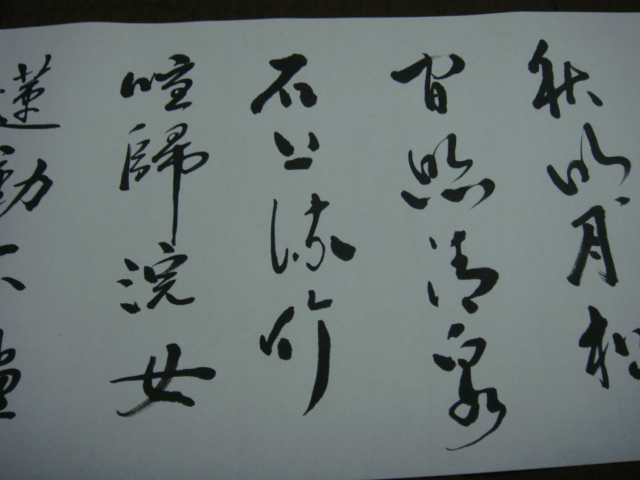 秋明月松
間照清泉
石上流竹
喧歸浣女
蓮動下漁